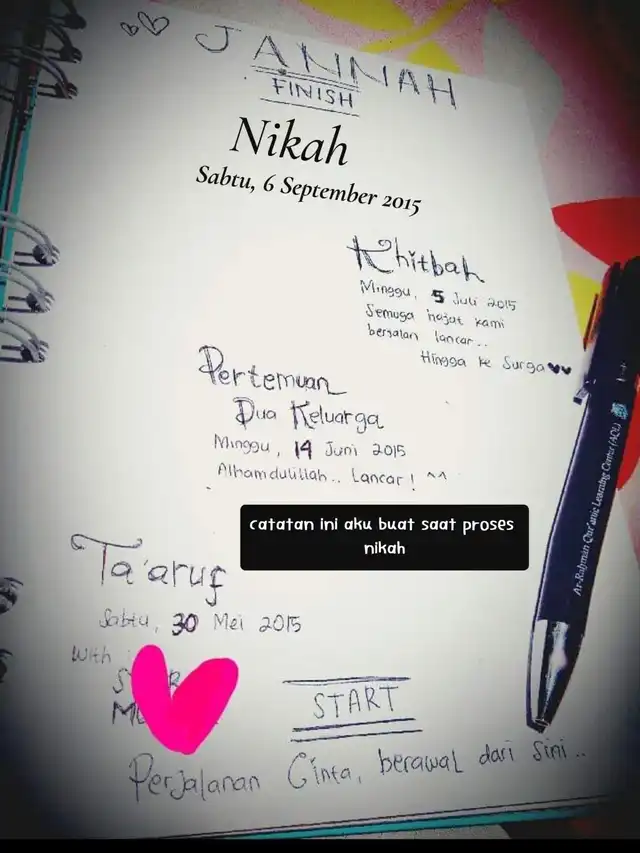 JANNAH
FINISH
Nikah
Sabtu, 6 September 2015
Khitbah
Minggu, 5 Juli 2015
Semuga hajat kami
berjalan lancar..
Hingga ke Surga
Pertemuan
Dua Keluarga
Minggu, 14 Juni 2015
Alhamdulillah.. Lancar! ^^
catatan ini aku buat saat proses
nikah
Ta'aruf
Sabtu, 30 Mei 2015
With
START
Perjalanan Cinta, berawal dari sini..
Ar-Rahman Qur'anic Learning Center (AQL)